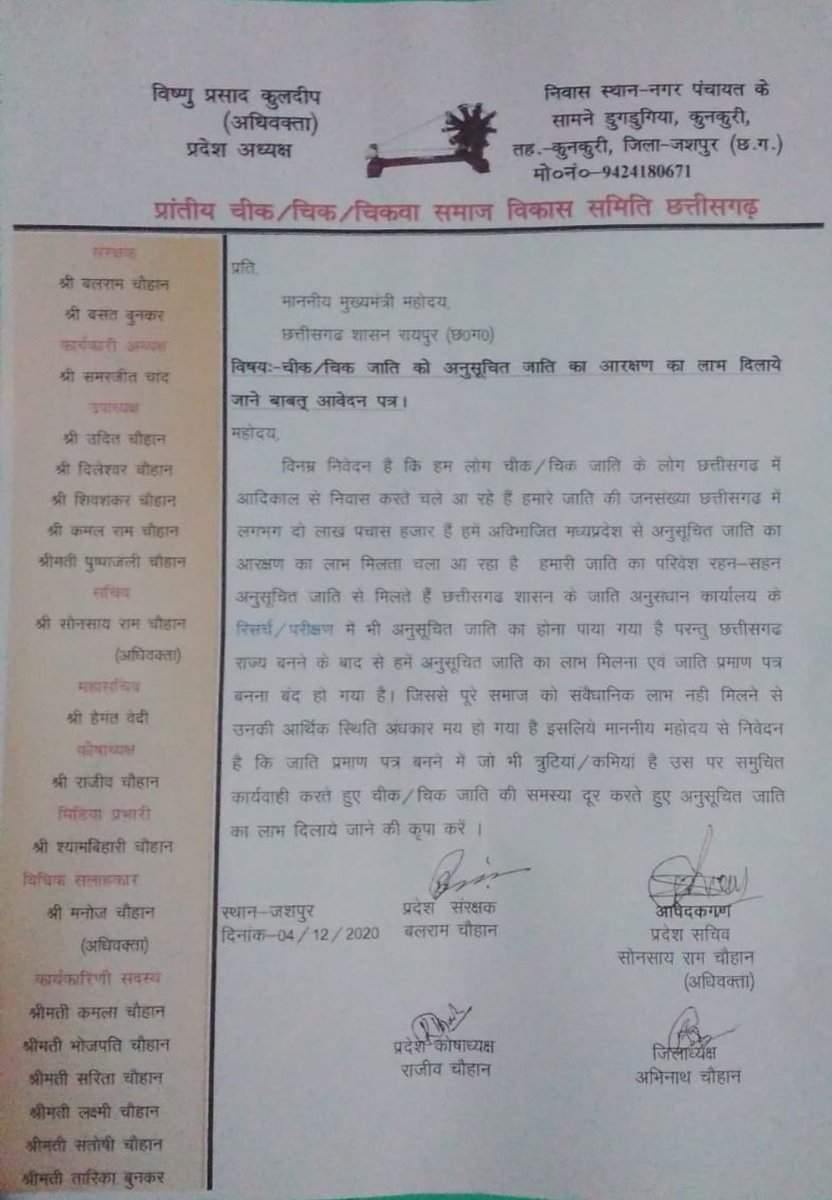 विष्णु प्रसाद कुलदीप
(अधिवक्ता)
प्रदेश अध्यक्ष
निवास स्थान-नगर पंचायत के
सामने डुगडुगिया, कुनकुरी,
तह.-कुनकुरी, जिला-जशपुर (छ.ग.)
मो०नं०-9424180671
प्रांतीय चीक/चिक/चिकवा समाज विकास समिति छत्तीसगढ़
संरक्षक
श्री बलराम चौहान
श्री बसत बुनकर
कार्यकारी अध्यक्ष
श्री समरजीत चांद
उपाध्यक्ष
श्री उदित चौहान
श्री दिलेश्वर चौहान
श्री शिवशकर चौहान
श्री कमल राम चौहान
श्रीमती पुष्पाजंली चौहान
सचिव
श्री सोनसाय राम चौहान
(अधिवक्ता)
महासचिव
श्री हेमंत वेदी
कोषाध्यक्ष
श्री राजीव चौहान
मिडिया प्रभारी
श्री श्यामबिहारी चौहान
विधिक सलाहकार
श्री मनोज चौहान
(अधिवक्ता)
कार्यकारिणी सदस्य
श्रीमती कमला चौहान
श्रीमती भोजपति चौहान
श्रीमती सरिता चौहान
श्रीमती लक्ष्मी चौहान
श्रीमती संतोषी चौहान
श्रीमती तारिका बुनकर
प्रति,
माननीय मुख्यमंत्री महोदय,
छत्तीसगढ शासन रायपुर (छ0ग0)
विषयः-चीक/चिक जाति को अनुसूचित जाति का आरक्षण का लाभ दिलाये
जाने बाबत् आवेदन पत्र।
महोदय,
विनम्र निवेदन है कि हम लोग चीक/चिक जाति के लोग छत्तीसगढ में
आदिकाल से निवास करते चले आ रहे हैं हमारे जाति की जनसंख्या छत्तीसगढ में
लगभग दो लाख पचास हजार हैं हमें अविभाजित मध्यप्रदेश से अनुसूचित जाति का
आरक्षण का लाभ मिलता चला आ रहा है हमारी जाति का परिवेश रहन-सहन
अनुसूचित जाति से मिलते हैं छत्तीसगढ शासन के जाति अनुसंधान कार्यालय के
रिसर्च/परीक्षण में भी अनुसूचित जाति का होना पाया गया है परन्तु छत्तीसगढ
राज्य बनने के बाद से हमें अनुसूचित जाति का लाभ मिलना एवं जाति प्रमाण पत्र
बनना बंद हो गया है। जिससे पूरे समाज को संवैधानिक लाभ नही मिलने से
उनकी आर्थिक स्थिति अधकार मय हो गया है इसलिये माननीय महोदय से निवेदन
है कि जाति प्रमाण पत्र बनने में जो भी त्रुटियां/कमियां है उस पर समुचित
कार्यवाही करते हुए चीक/चिक जाति की समस्या दूर करते हुए अनुसूचित जाति
का लाभ दिलाये जाने की कृपा करें ।
स्थान-जशपुर
दिनांक-04/12/2020
प्रदेश संरक्षक
बलराम चौहान
आवेदकगण
प्रदेश सचिव
सोनसाय राम चौहान
(अधिवक्ता)
प्रदेश कोषाध्यक्ष
राजीव चौहान
जिलाध्यक्ष
अभिनाथ चौहान